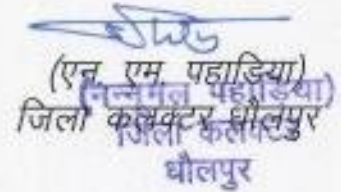 (एन एम पहाडिया)
(नन्नूमल पहाडिया)
जिला कलक्टर धौलपुर
जिला कलक्टर
धौलपुर